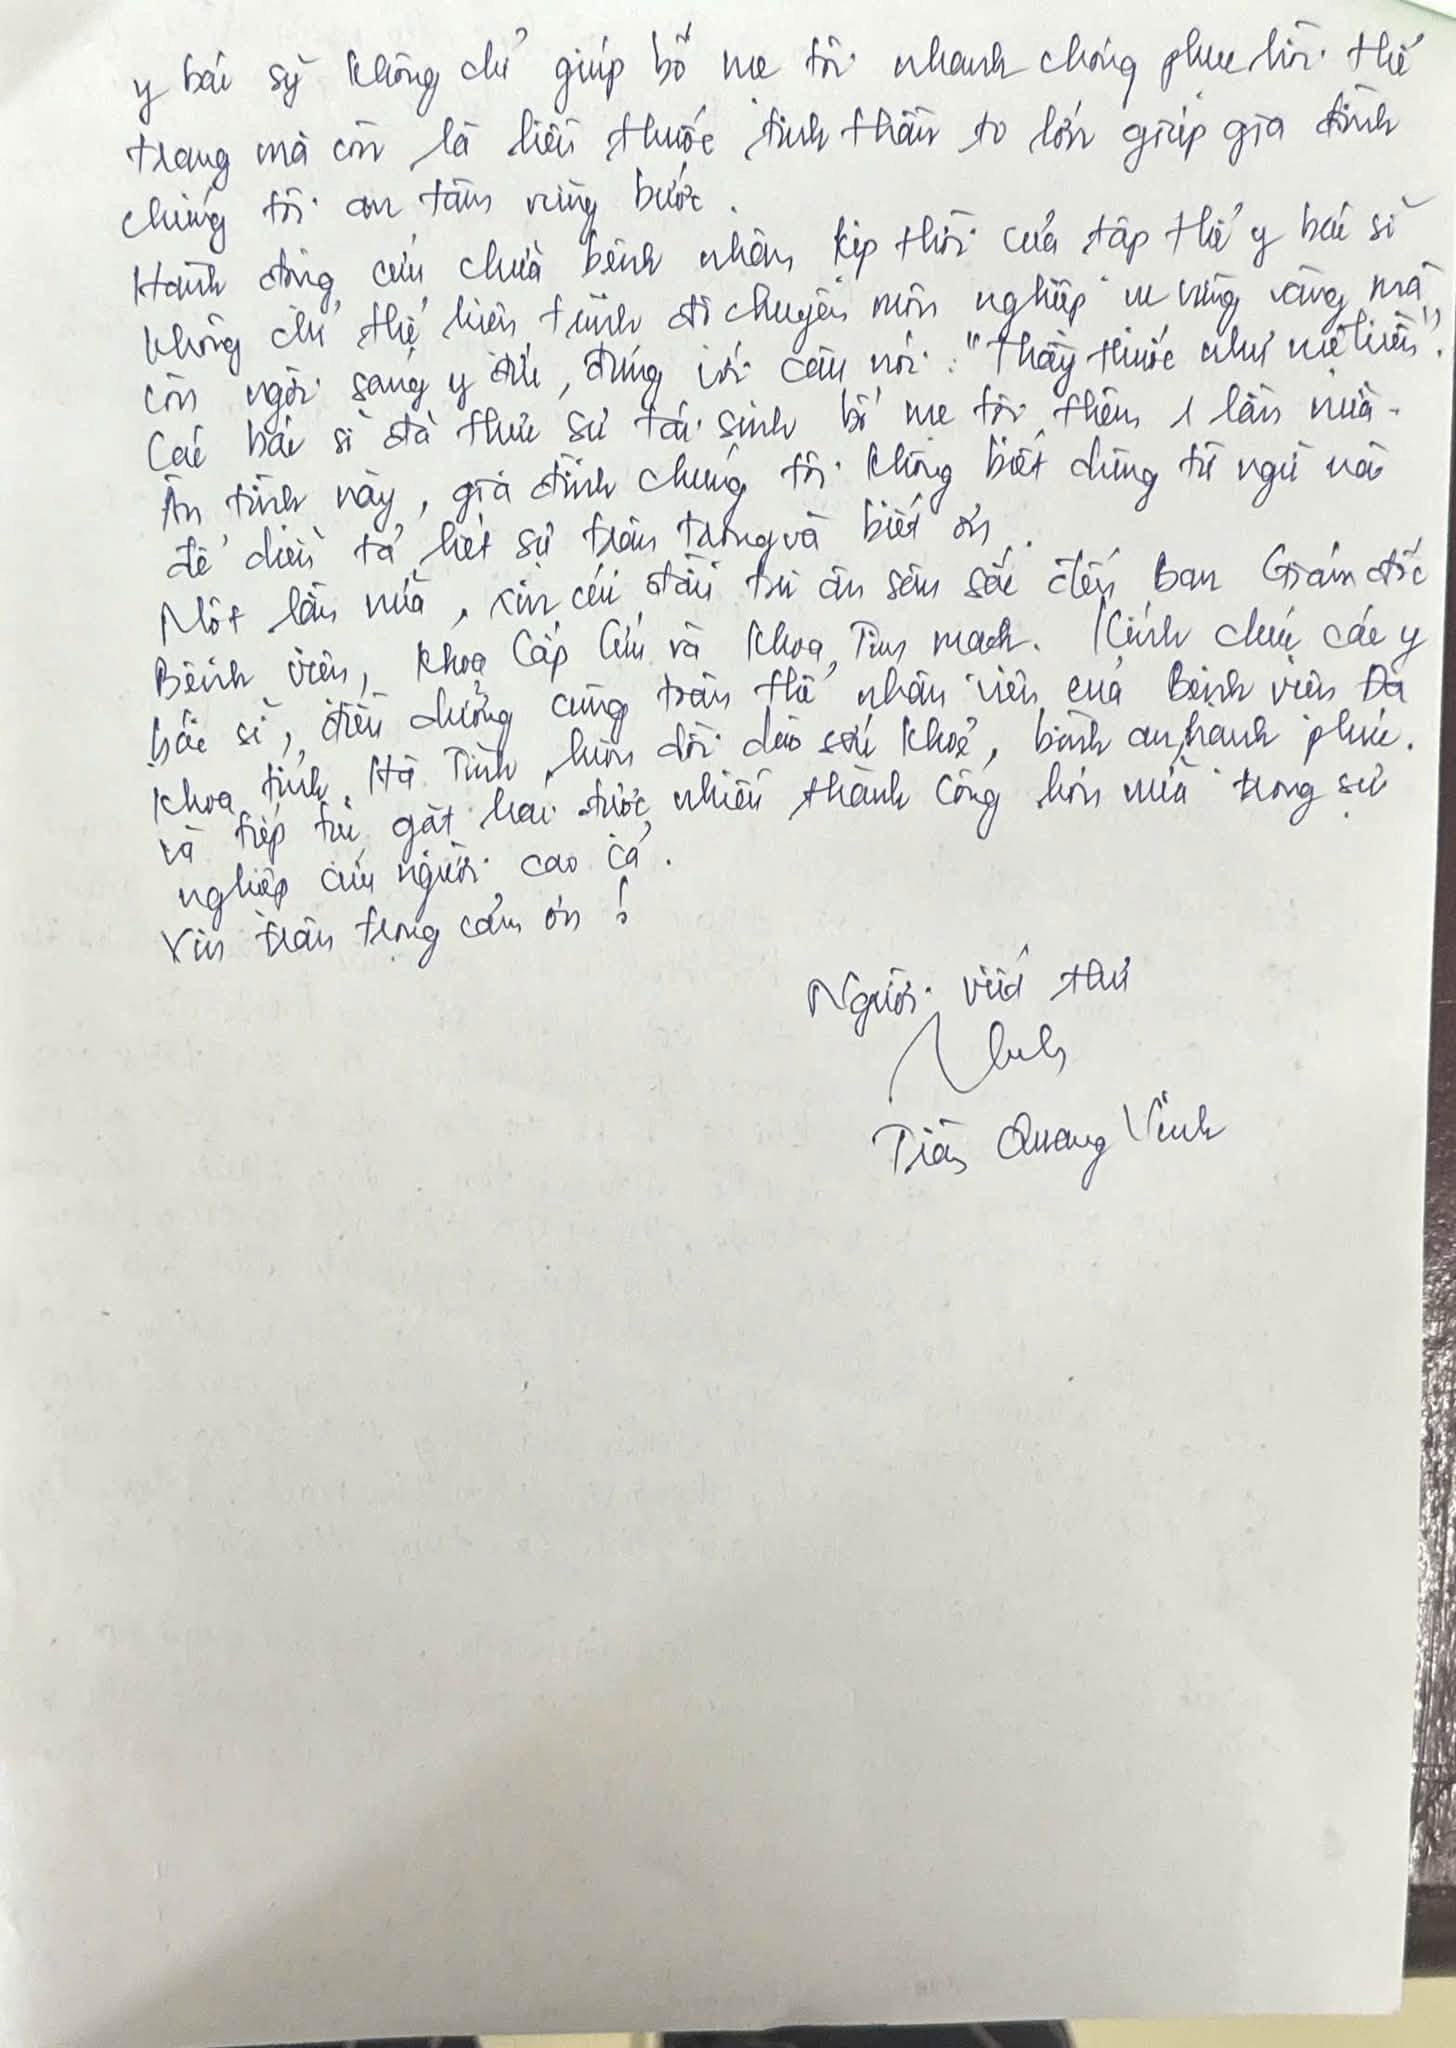 y bác sỹ không chỉ giúp bố mẹ tôi nhanh chóng phục hồi thể
trạng mà còn là liều thuốc tinh thần to lớn giúp gia đình
chúng tôi an tâm vững bước.
Hành động cứu chữa bệnh nhân kịp thời của tập thể y bác sĩ
không chỉ thể hiện trình độ chuyên môn nghiệp vụ vững vàng mà
còn ngời sáng y đức, đúng với câu nói: "Thầy thuốc như mẹ hiền".
Các bác sĩ đã thực sự tái sinh bố mẹ tôi thêm 1 lần nữa.
Ân tình này, gia đình chúng tôi không biết dùng từ ngữ nào
để diễn tả hết sự trân trọng và biết ơn.
Một lần nữa, xin cúi đầu tri ân sâu sắc đến Ban Giám đốc
Bệnh viện, khoa Cấp Cứu và Khoa Tim mạch. Kính chúc các y
bác sĩ, điều dưỡng cùng toàn thể nhân viên của Bệnh viện Đa
khoa tỉnh Hà Tĩnh luôn dồi dào sức khoẻ, bình an, hạnh phúc.
và tiếp tục gặt hái được nhiều thành công hơn nữa trong sự
nghiệp cứu người cao cả.
Xin trân trọng cảm ơn!
Người viết thư
Trần Quang Vinh